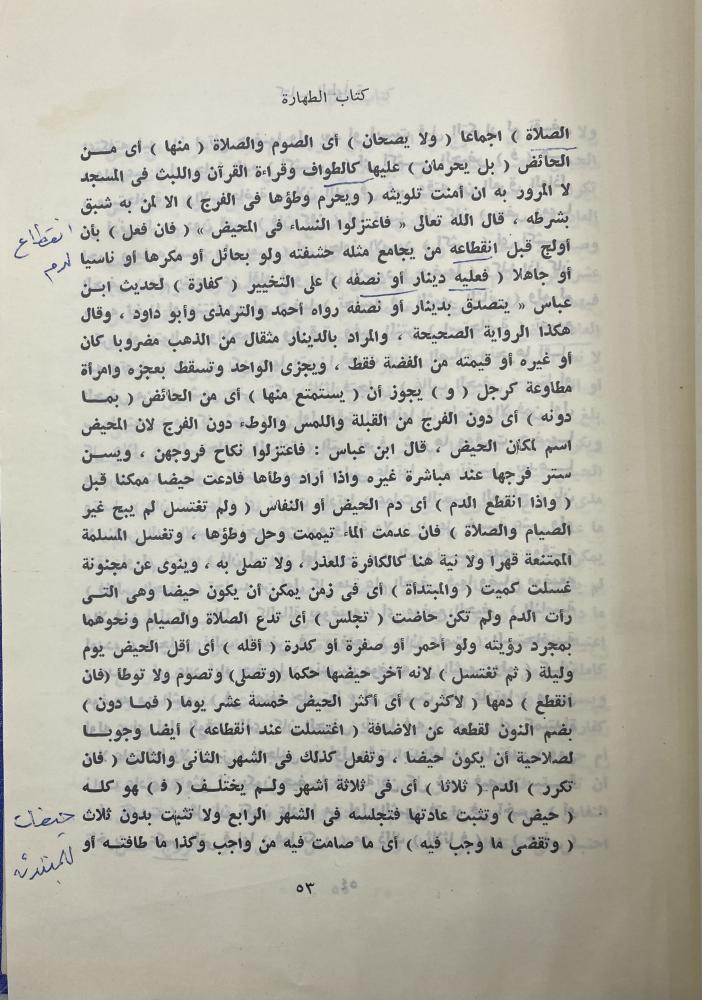 كتاب الطهارة
الصلاة ) اجماعا ( ولا يصحان ) أى الصوم والصلاة ( منها ) أى مـــن
الحائض ( بل يحرمان ) عليها كالطواف وقراءة القرآن واللبث فى المسجد
لا المرور به ان أمنت تلويثه ( ويحرم وطؤها فى الفرج ) الا لمن به شبق
بشرطه ، قال الله تعالى « فاعتزلوا النساء فى المحيض » ( فان فعل ) بأن
أولج قبل انقطاعه من يجامع مثله حشفته ولو بحائل أو مكرها أو ناسيا
أو جاهلا ( فعليه دينار أو نصفه ) على التخيير ( كفارة ) لحديث ابـن
عباس « يتصدق بدينار أو نصفه رواه أحمد والترمذى وأبو داود ، وقال
هكذا الرواية الصحيحة ، والمراد بالدينار مثقال من الذهب مضروبا كان
أو غيره أو قيمته من الفضة فقط ، ويجزى الواحد وتسقط بعجزه وامرأة
مطاوعة كرجل ( و ) يجوز أن ( يستمتع منها ) أى من الحائض ( بمـا
دونه ) أى دون الفرج من القبلة واللمس والوطء دون الفرج لان المحيض
اسم لمكان الحيض ، قال ابن عباس : فاعتزلوا نكاح فروجهن ، ويســن
ستر فرجها عند مباشرة غيره واذا أراد وطأها فادعت حيضا ممكنا قبل
( واذا انقطع الدم ) أى دم الحيض أو النفاس ( ولم تغتسل لم يبح غير
الصيام والصلاة ) فان عدمت الماء تيممت وحل وطؤها ، وتغسل المسلمة
الممتنعة قهرا ولا نية هنا كالكافرة للعذر ، ولا تصلى به ، وينوى عن مجنونة
غسلت كميت ( والمبتدأة ) أى فى زمن يمكن أن يكون حيضا وهى التـى
رأت الدم ولم تكن حاضت ( تجلس ) أى تدع الصلاة والصيام ونحوهما
بمجرد رؤيته ولو أحمر أو صفرة أو كدرة ( أقله ) أى أقل الحيض يوم
وليلة ( ثم تغتسل ) لانه آخر حيضها حكما (وتصلى) وتصوم ولا توطأ (فان
انقطع ) دمها ( لاكثره ) أى أكثر الحيض خمسة عشر يوما ( فما دون )
بضم النون لقطعه عن الاضافة ( اغتسلت عند انقطاعه ) أيضا وجوبـا
لصلاحية أن يكون حيضا ، وتفعل كذلك فى الشهر الثانى والثالث ( فان
تكرر ) الدم ( ثلاثا ) أى فى ثلاثة أشهر ولم يختلـف ( فـ ) هو كلـه
( حيض ) وتثبت عادتها فتجلسه فى الشهر الرابع ولا تثبت بدون ثلاث
( وتقضى ما وجب فيه ) أى ما صامت فيه من واجب وكذا ما طافتـه أو
٥٣
انقطاع